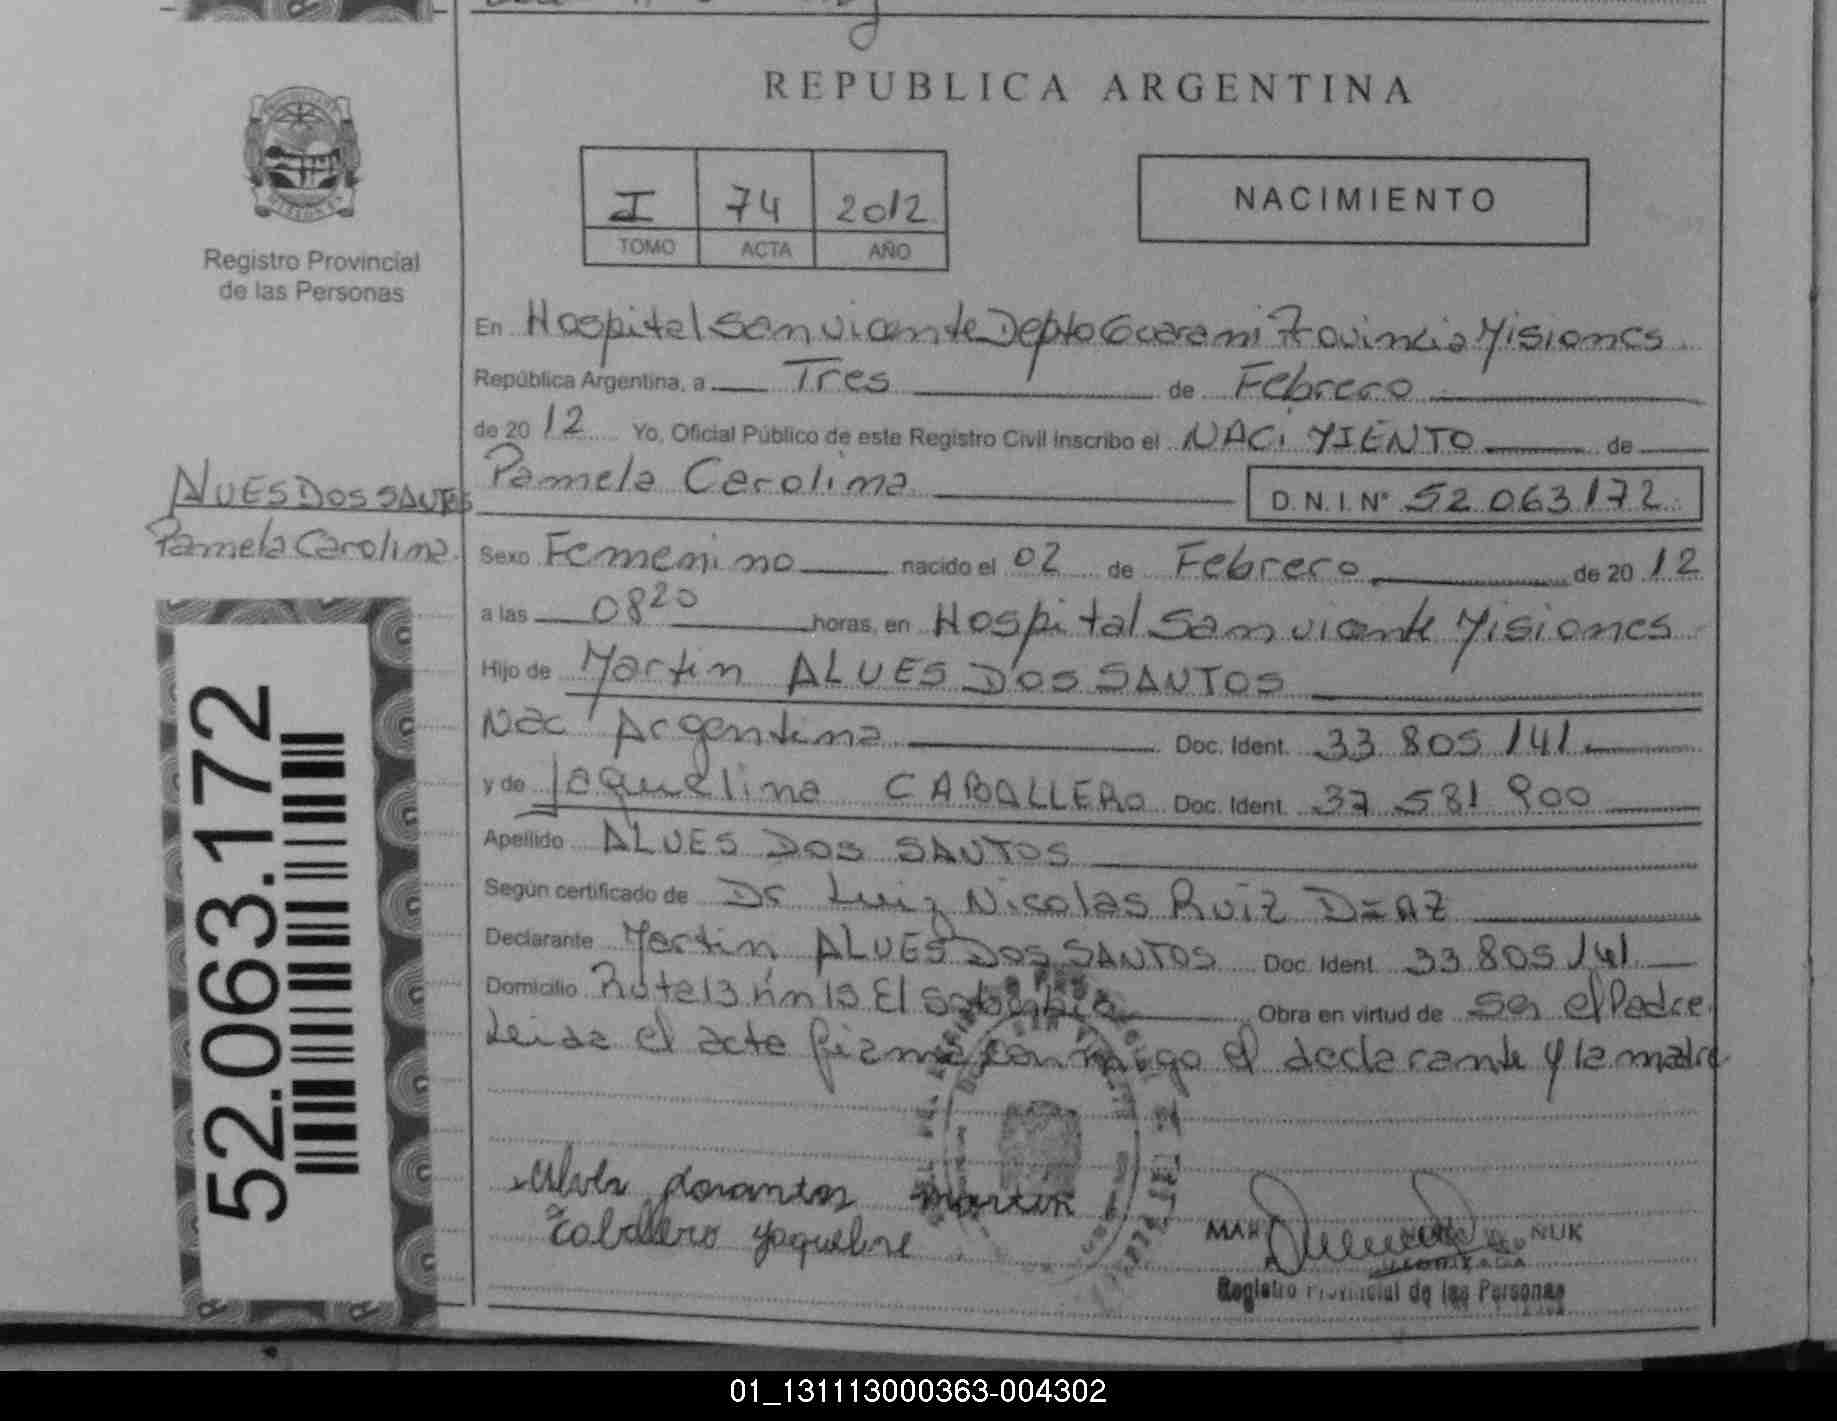 REPUBLICA ARGENTINA
I 74 2012
TOMO ACTA AÑO
NACIMIENTO
Registro Provincial
de las Personas
En Hospital San vicente Depto Guarani Provincia Misiones
República Argentina, a Tres de Febrero
de 2012 Yo, Oficial Público de este Registro Civil inscribo el NACIMIENTO de
Pamela Carolina D.N.I.Nº 52.063.172
ALVES DOS SANTOS
Pamela Carolina
Sexo Femenino nacido el 02 de Febrero de 2012
a las 08 20 horas, en Hospital San vicente Misiones
Hijo de Martin ALVES DOS SANTOS
Nac Argentina Doc. Ident. 33 805 141
y de Jaquelina CABALLERO Doc. Ident. 37 581 900
Apellido ALVES DOS SANTOS
Según certificado de Dr Luiz Nicolas Ruiz DIAZ
Declarante Martin ALVES DOS SANTOS Doc. Ident. 33 805 141
Domicilio Ruta 13 Km 15 El Obra en virtud de Ser el Padre
Leida el acta firma conmigo el declarante y la madre
52.063.172
Alves dosantos martin
Caballero yaqueline
Registro Provincial de las Personas
01_131113000363-004302